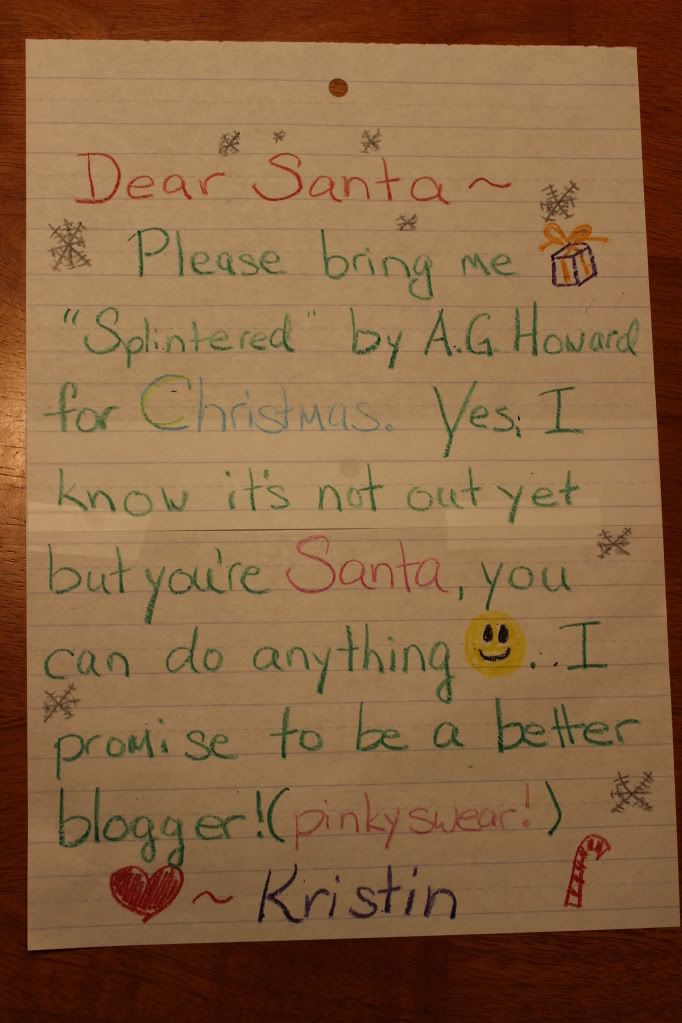 Dear Santa ~
Please bring me
"Splintered" by A.G Howard
for Christmas. Yes, I
know it's not out yet
but you're Santa, you
can do anything ... I
promise to be a better
blogger! (pinky swear!)
~ Kristin